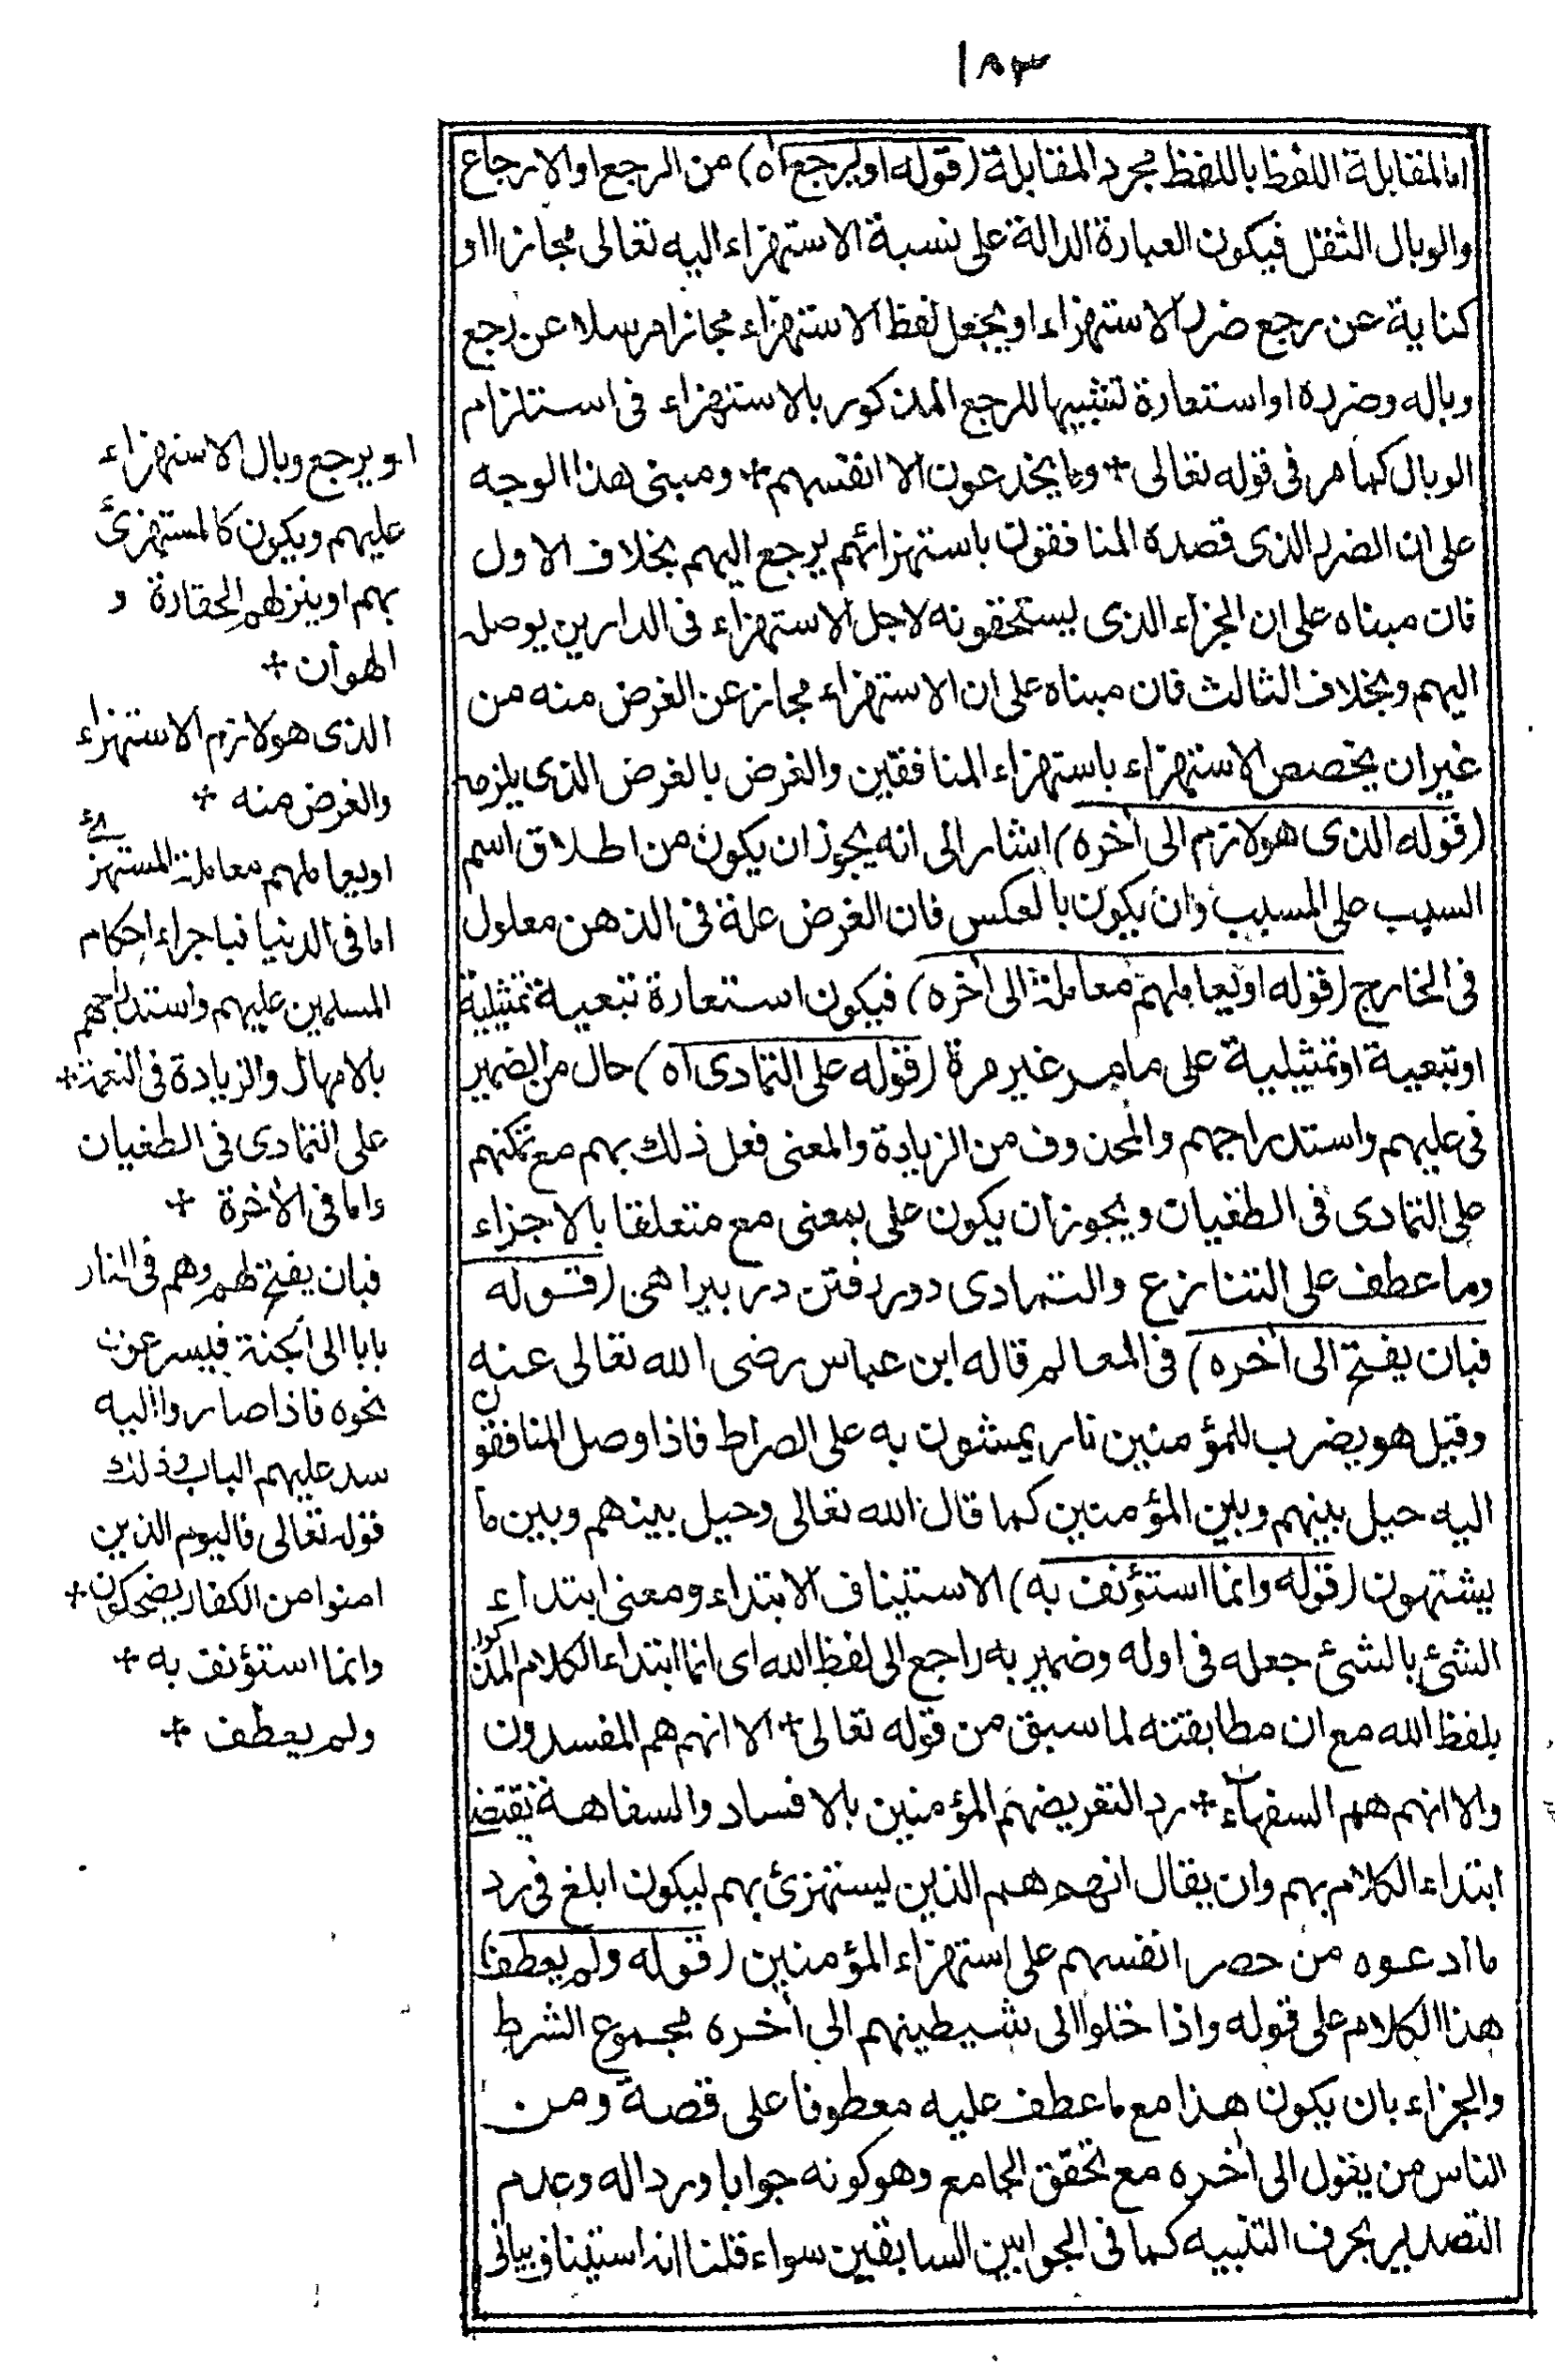 ١٨٣
اما لمقابلة اللفظ باللفظ مجرد المقابلة (قوله او يرجع اه) من الرجع او الارجاع
والوبال الثقل فيكون العبارة الدالة على نسبة الاستهزاء اليه تعالى مجازا او
كناية عن رجع ضرر الاستهزاء او يجعل لفظ الاستهزاء مجازا مرسلا عن رجع
وباله وضرره او استعارة تشبيها للرجع المذكور بالاستهزاء فى استلزام
الوبال كما مر فى قوله تعالى + وما يخدعون الا انفسهم + ومبنى هذا الوجه
على ان الضرر الذى قصده المنافقون باستهزائهم يرجع اليهم بخلاف الاول
فان مبناه على ان الجزاء الذى يستحقونه لاجل الاستهزاء فى الدارين يوصله
اليهم وبخلاف الثالث فان مبناه على ان الاستهزاء مجاز عن الغرض منه من
غير ان يخصص الاستهزاء باستهزاء المنافقين والغرض بالغرض الذى يلزمه
(قوله الذى هو لازم الى أخره) اشار الى انه يجوز ان يكون من اطلاق اسم
السبب على المسبب وان يكون بالعكس فان الغرض علة فى الذهن معلول
فى الخارج (قوله او يعاملهم معاملة الى أخره) فيكون استعارة تبعية تمثيلية
او تبعية او تمثيلية على ما مر غير مرة (قوله على التمادى اه) حال من الضمير
فى عليهم واستدراجهم والمحذوف من الزيادة والمعنى فعل ذلك بهم مع تمكنهم
على التمادى فى الطغيان ويجوز ان يكون على بمعنى مع متعلقا بالاجزاء
وما عطف على التنازع والتمادى دور رفتن در بيراهى (قوله
فبان يفتح الى أخره) فى المعالم قاله ابن عباس رضى الله تعالى عنه
وقيل هو يضرب للمؤمنين نار يمشون به على الصراط فاذا وصل المنافقون
اليه حيل بينهم وبين المؤمنين كما قال الله تعالى وحيل بينهم وبين ما
يشتهون (قوله وانما استؤنف به) الاستيناف الابتداء ومعنى ابتداء
الشئ بالشئ جعله فى اوله وضمير به راجع الى لفظ الله اى انما ابتداء الكلام المذكور
بلفظ الله مع ان مطابقته لما سبق من قوله تعالى + الا انهم هم المفسدون
والا انهم هم السفهآء + رد التعريضهم المؤمنين بالافساد والسفاهة تقتضى
ابتداء الكلام بهم وان يقال انهم هم الذين يستهزئ بهم ليكون ابلغ فى رد
ما ادعوه من حصر انفسهم على استهزاء المؤمنين (قوله ولم يعطف)
هذا الكلام على قوله واذا خلوا الى شيطينهم الى أخره مجموع الشرط
والجزاء بان يكون هذا مع ما عطف عليه معطوفا على قصة ومن
الناس من يقول الى أخره مع تحقق الجامع وهو كونه جوابا وردا له وعدم
التصدير بحرف التنبيه كما فى الجوابين السابقين سواء قلنا انه استيناف بيانى
او يرجع وبال الاستهزاء
عليهم ويكون كالمستهزئ
بهم او ينزلهم الحقارة و
الهوان +
الذى هو لازم الاستهزاء
والغرض منه +
او يعاملهم معاملة المستهزئ
اما فى الدنيا فباجراء احكام
المسلمين عليهم واستدراجهم
بالامهال والزيادة فى النعمة +
على التمادى فى الطغيان
واما فى الأخرة +
فبان يفتح لهم وهم فى النار
بابا الى الجنة فيسرعون
نحوه فاذا صاروا اليه
سد عليهم الباب وذلك
قوله تعالى فاليوم الذين
امنوا من الكفار يضحكون +
وانما استؤنف به +
ولم يعطف +